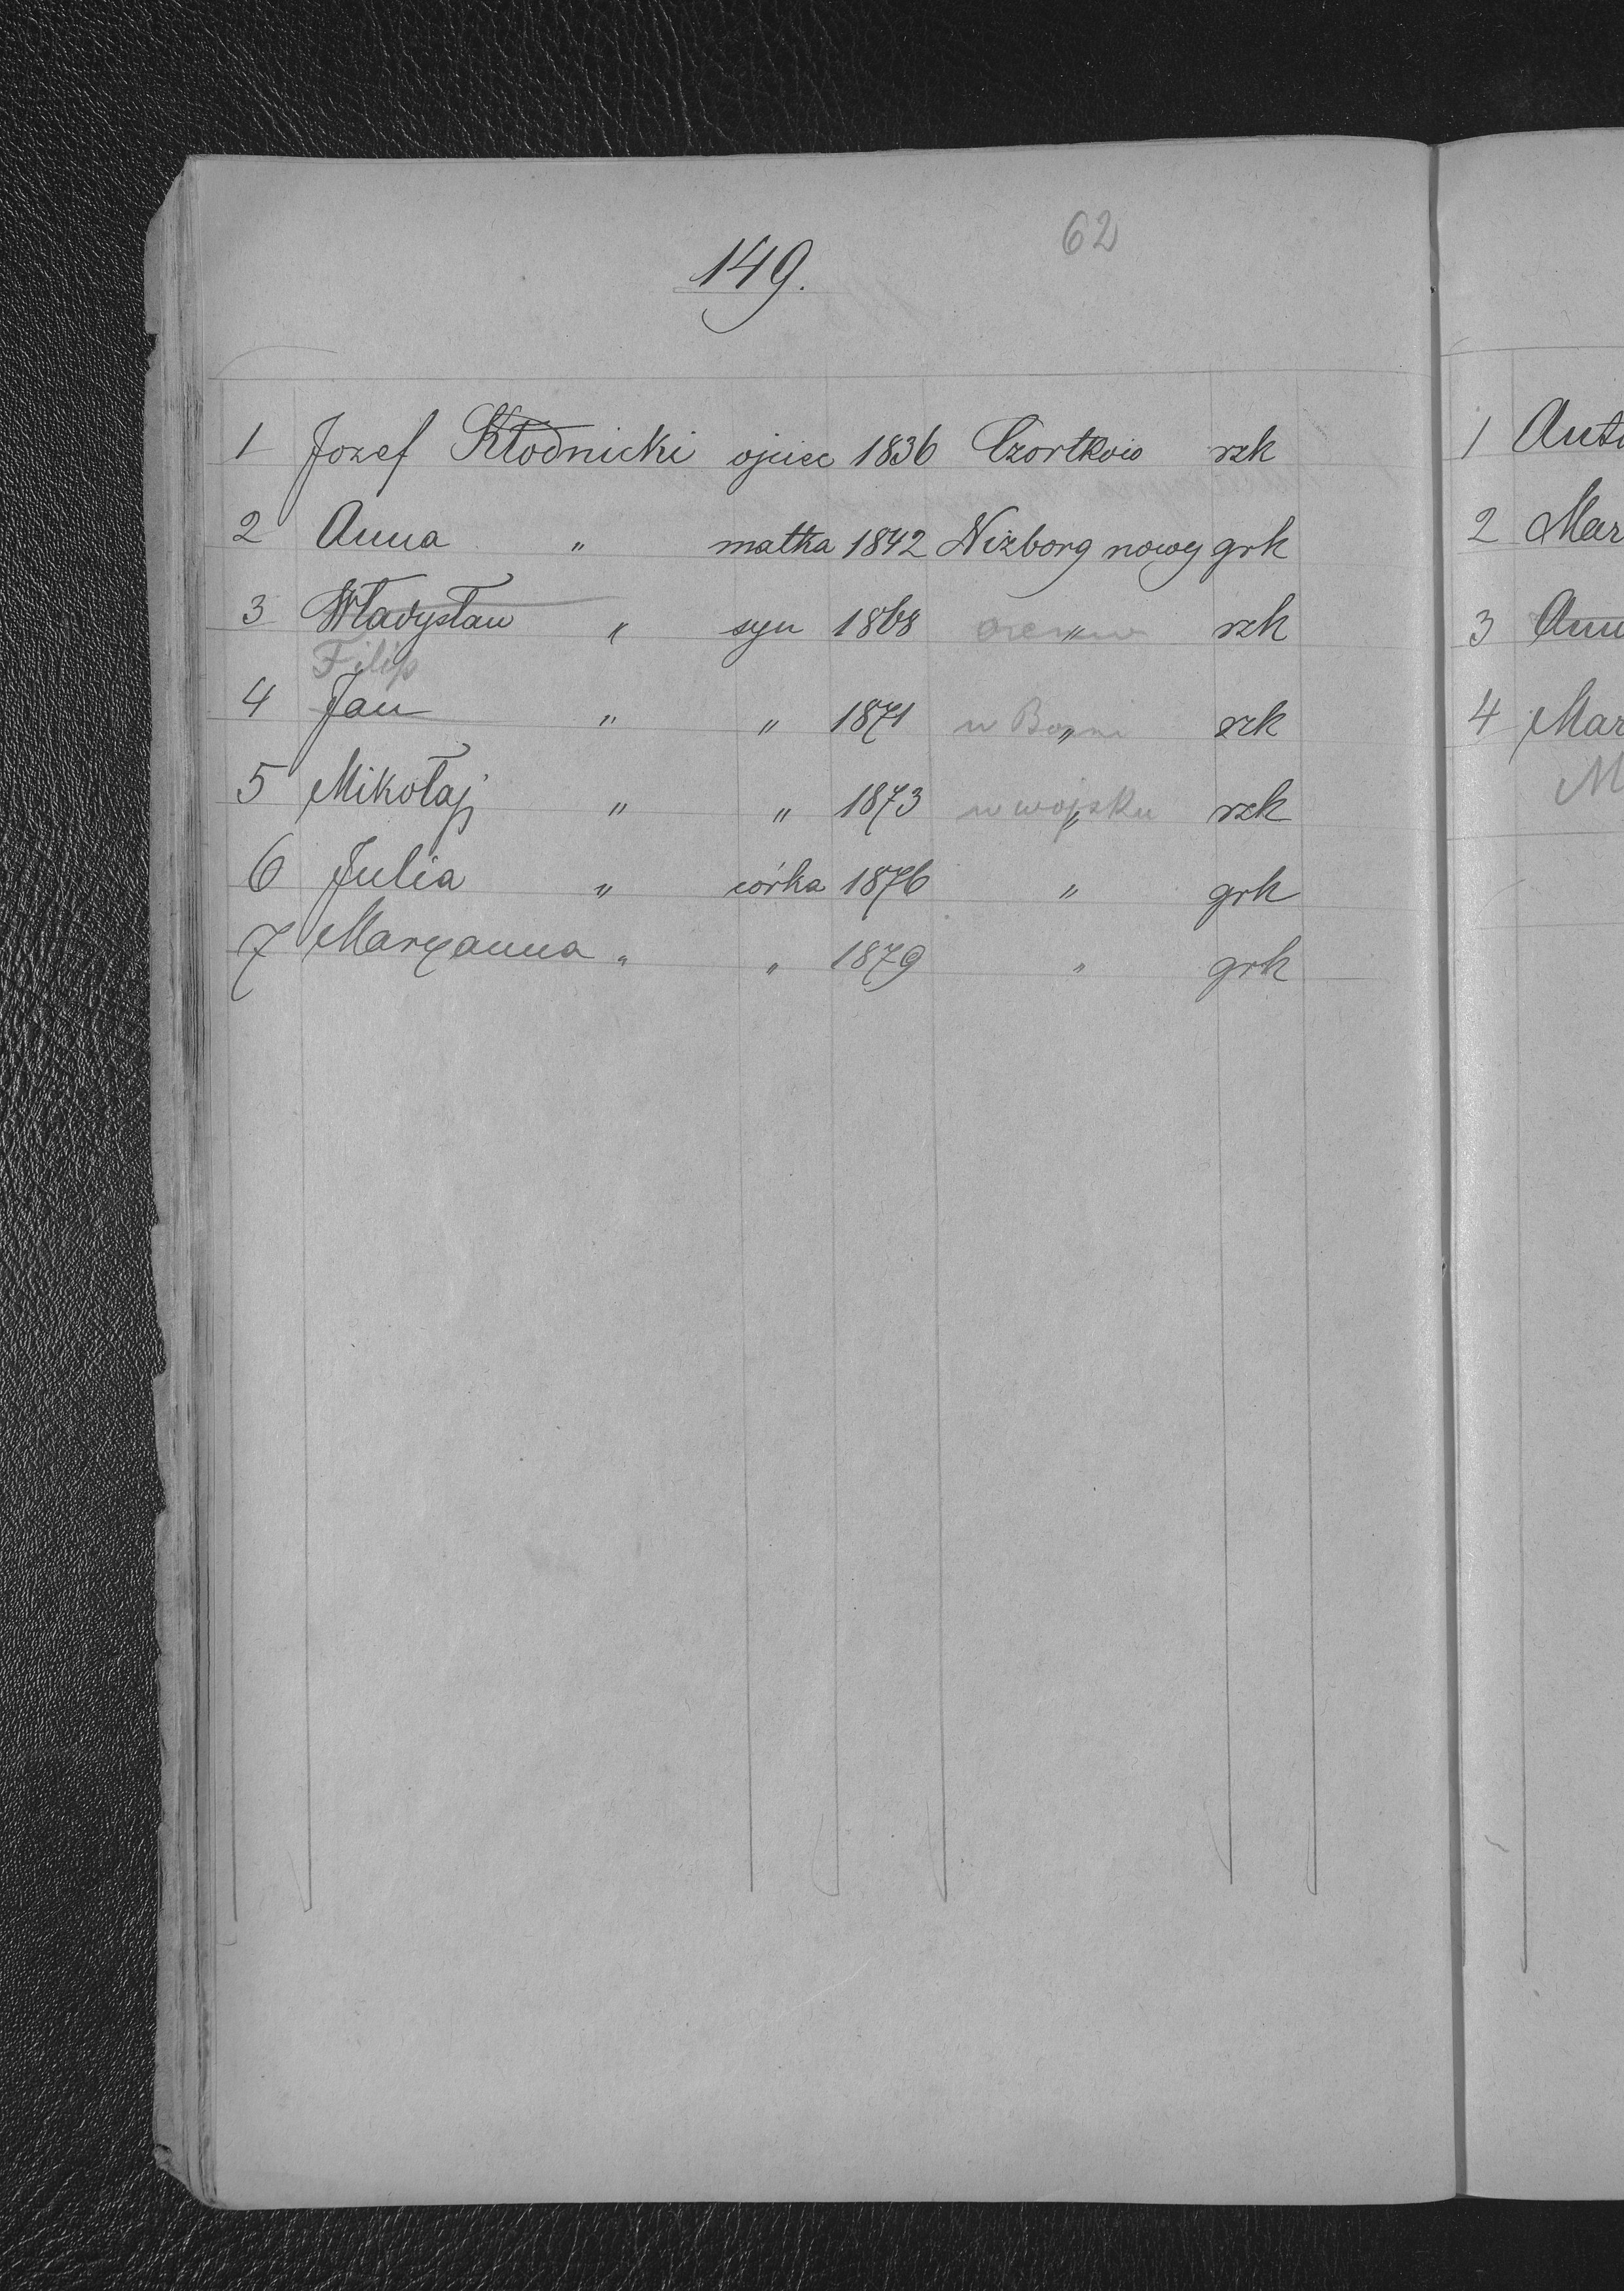 62
149.
1 Jozef Kłodnicki ojciec 1836 Czortków rzk
2 Anna " matka 1842 Niżborg nowy grk
3 Władysław " syn 1868 " rzk
Filip
4 Jan " " 1871 w " rzk
5 Mikołaj " " 1873 w wojsku " rzk
6 Julia " córka 1876 " grk
7 Maryanna " " 1879 " grk
1
2 Mar
3
4 Mar
M